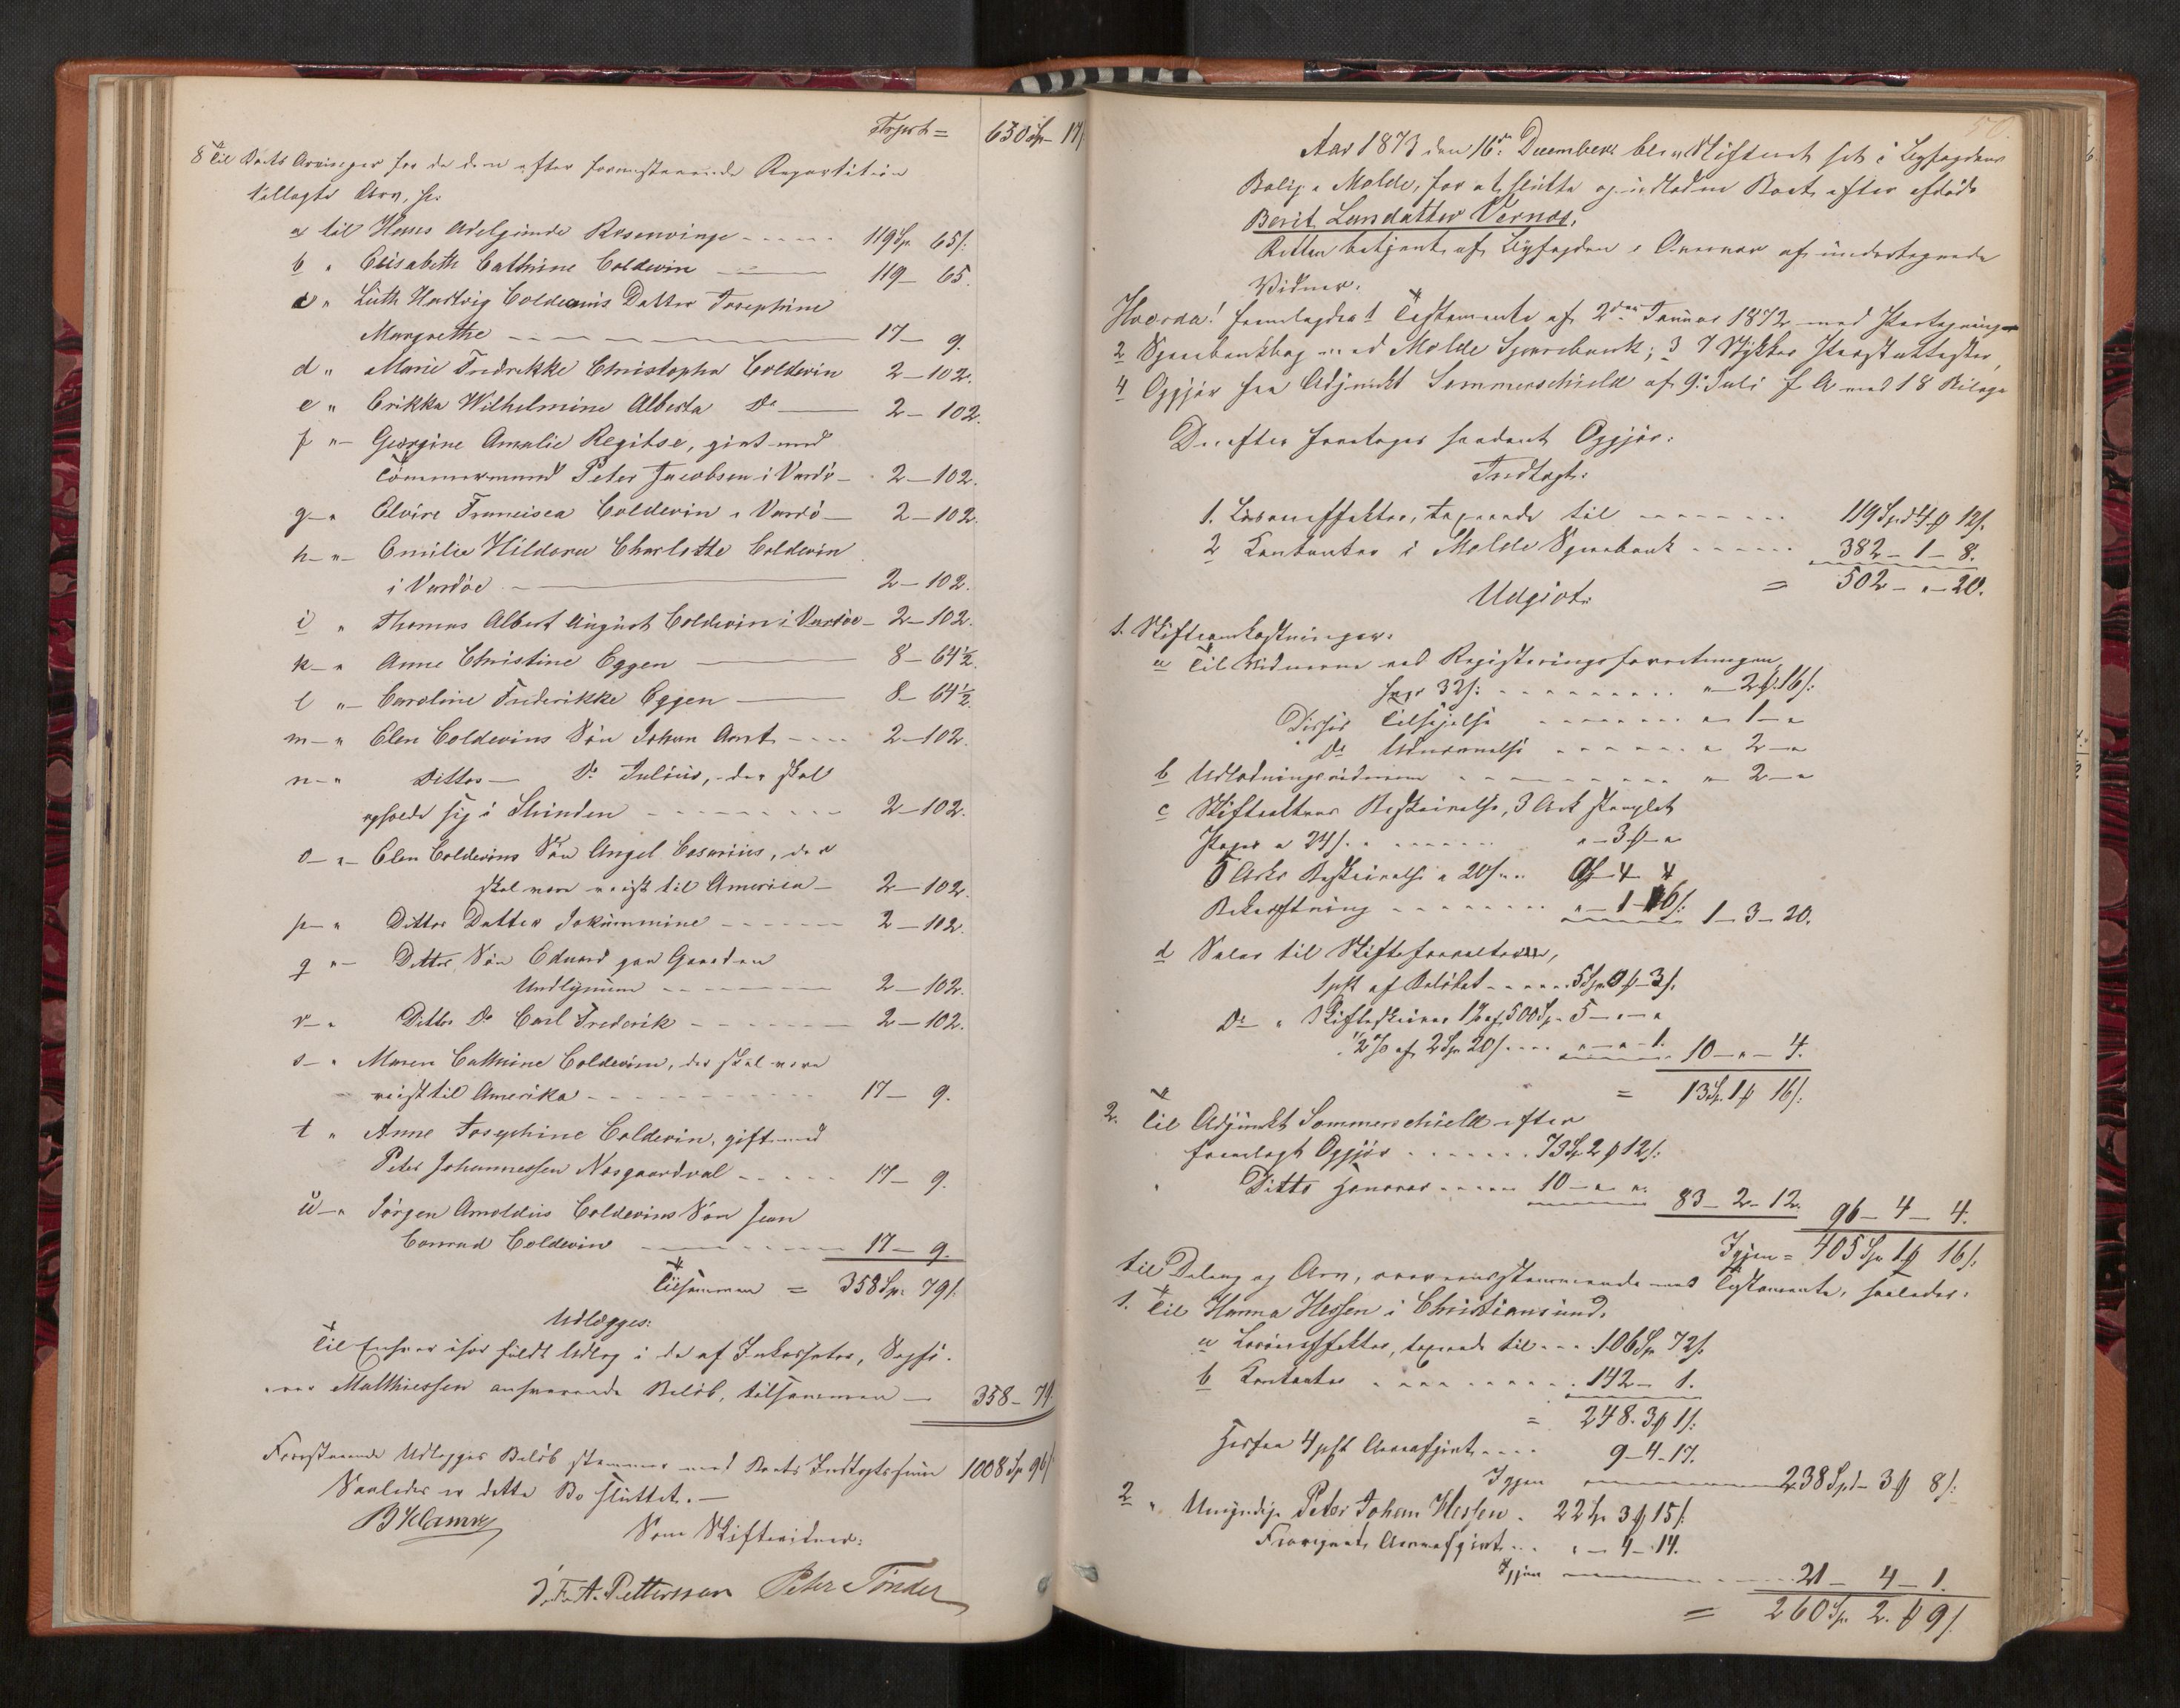 Transport = 650 Sp - 17
8 Til Boets Arvinger for da den efter foranstaaende Repartition
tillagte Arv, se:
a til Hans Adelgunde Rosenvinge - - - - - 119 Sp. 65 s.
b " Elisabeth Cathrine Coldevin — 119 — 65.
c " Lüth Hartvig Coldevins Datter Josephine
Margrethe - - - - 17 — 9.
d " Marie Fredrikke Christopha Coldevin 2 — 102.
e " Erikka Wilhelmine Alberta Do — 2 — 102.
f "- Georgine Amalie Regitse, gift med
Tömmermand Peter Jacobsen i Vardö - 2 — 102.
g - " Elvire Francisca Coldevin i Vardö — 2 — 102.
h - "- Emilie Hildora Charlotte Coldevin
i Vardöe — 2 — 102.
i " Thomas Albert August Coldevin i Vardöe - 2 — 102.
k - " Anne Christine Eggen — 8 — 64½.
l "- Caroline Frederikke Eggen — 8 — 64½.
m - " Elen Coldevins Sön Johan Arnt - - - - 2 — 102.
n - " Dittos — Do Julius, der skal
opholde sig i Thinden - - - - 2 — 102.
o - " - Elen Coldevins Sön Angel Cesarius, der
skal være reist til America — 2 — 102.
p - " Dittos Datter Jokumine - - - - - - 2 — 102.
q "- Dittos Sön Edvard paa Gaarden
Undlynum - - - - - - 2 — 102.
r - " Dittos Do Carl Frederik - - - - - - 2 — 102.
s - " Maren Cathrine Coldevin, der skal være
reist til Amerika - - - - - - 17 — 9.
t " Anne Josephine Coldevin, gift med
Peter Johannessen Nesgaardval - - - - - 17 — 9.
u - " Jörgen Arnoldus Coldevins Sön Jean
Conrad Coldevin - - - - 17 — 9.
Tilsammen = 358 Sp. 79 s.
Udlægges:
Til Enhver især fuldt Udlæg i de af Inkassator, Sagfö-
rer Matthiessen ansvarende Belöb, tilsammen — 358 - 79
Forestaaende Udlægges Belöb stemmer med Boets Indtægtssum 1008 Sp 96 s
Saaledes er dette Bo sluttet. —
B Klamry
Som Skiftevidner:
J. F. A. Pettersen Peter Tönder
50.
Aar 1873 den 16de December blev Skifteret sat i Byfogdens
Bolig i Molde, for at slutte og udlodne Boet efter afdöde
Berit Larsdatter Vernøs.
Retten betjent af Byfogden i Overvær af undertegnede
Vidner.
Hvorda! fremlagdes 1 Testamente af 2den Januar 1872 med Paategning
2 Sparebankbog med Molde Sparebank; 3 7 Stykker Præsteattester,
4 Opgjör fra Adjunkt Sommerschield af 9: Juli f. A med 18 Bilage
Derefter foretoges saadant Opgjör:
Indtægt:
1. Lösöreeffekter, taxerede til - - - - - - 119 Spd 4 ß 12 s.
2 Kontanter i Molde Sparebank - - - - - - 382 - 1 - 8.
= 502 - " - 20.
Udgivt:
1. Skifteomkostninger:
a Til Vidnerne ved Registreringsforretningen
hver 32 s: - - - - - " - 2 ß. 16 s:
Disses Tilsigelse - - - - - - " - 1 - "
Do Udnævnelse - - - - - " 2 - "
b Udlodningsvidnerne - - - - - " - 2 - "
c Skifteaktens Beskrivelse, 3 Ark stemplet
Papir a 24 s. - - - - - " - 3 ß - "
5 Arks Beskrivelse a 20 s. - - " 4 - 4
Bekræftning - - - - - - - " - 1 - 16 s: 1 - 3 - 20.
d Salær til Skifteforvalteren,
1 pCt af Belöbet - - - - - 5 Sp 0 ß - 3 s.
Do " Skifteskriver 1% af 500 Sp - 5 - " - "
½ % af 2 Sp 20 s. - - - - " - " - 1. 10 - " - 4.
= 13 Sp. 1 ß 16 s:
2. Til Adjunkt Sommerschield efter
fremlagt Opgjör - - - - - - - 73 Sp 2 ß 12 s:
Ditto Honorar - - - - - 10 - " ". 83 - 2 - 12. 96 - 4 - 4.
Igjen = 405 Sp 1 ß 16 s.
til Deling og Arv, overensstemmende med Testamente, saaledes:
1. Til Hanna Hessen i Christiansund.
a Lösöreeffekter, taxerede til - - - 106 Sp 72 s.
b Kontanter - - - - - - - 142 - 1.
= 248. 3 ß 1 s:
Herfra 4 pCt Arveafgivt - - - - 9 - 4 - 17.
Igjen — 238 Spd - 3 ß 8 s:
2 " Umyndige Peter Johan Hessen - 22 Sp 3 ß 15 s.
Fravigende Arveafgivt - - - " - 4 - 14.
Igjen — 21 - 4 - 1.
= 260 Sp. 2. ß 9 s.